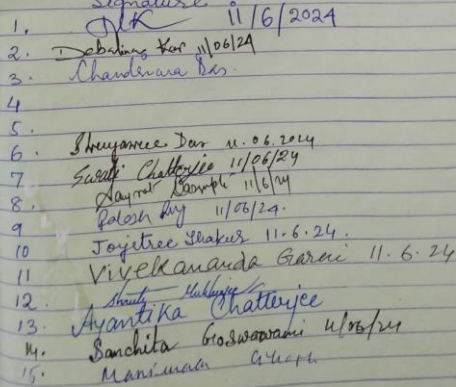 Signature
1. 11/6/2024
2. Debalina Kar 11/06/24
3. Chandrima Das.
4
5.
6. Shreyasree Das 11.06.2024
7 Swati Chatterjee 11/06/24
8. 11/6/24
9 Palash 11/06/24.
10 Joyetree Thakur 11.6.24.
11 Vivekananda 11.6.24
12. Mukherjee
13. Ayantika Chatterjee
14. Sanchita Goswami 11/06/24
15. Manimala Ghosh